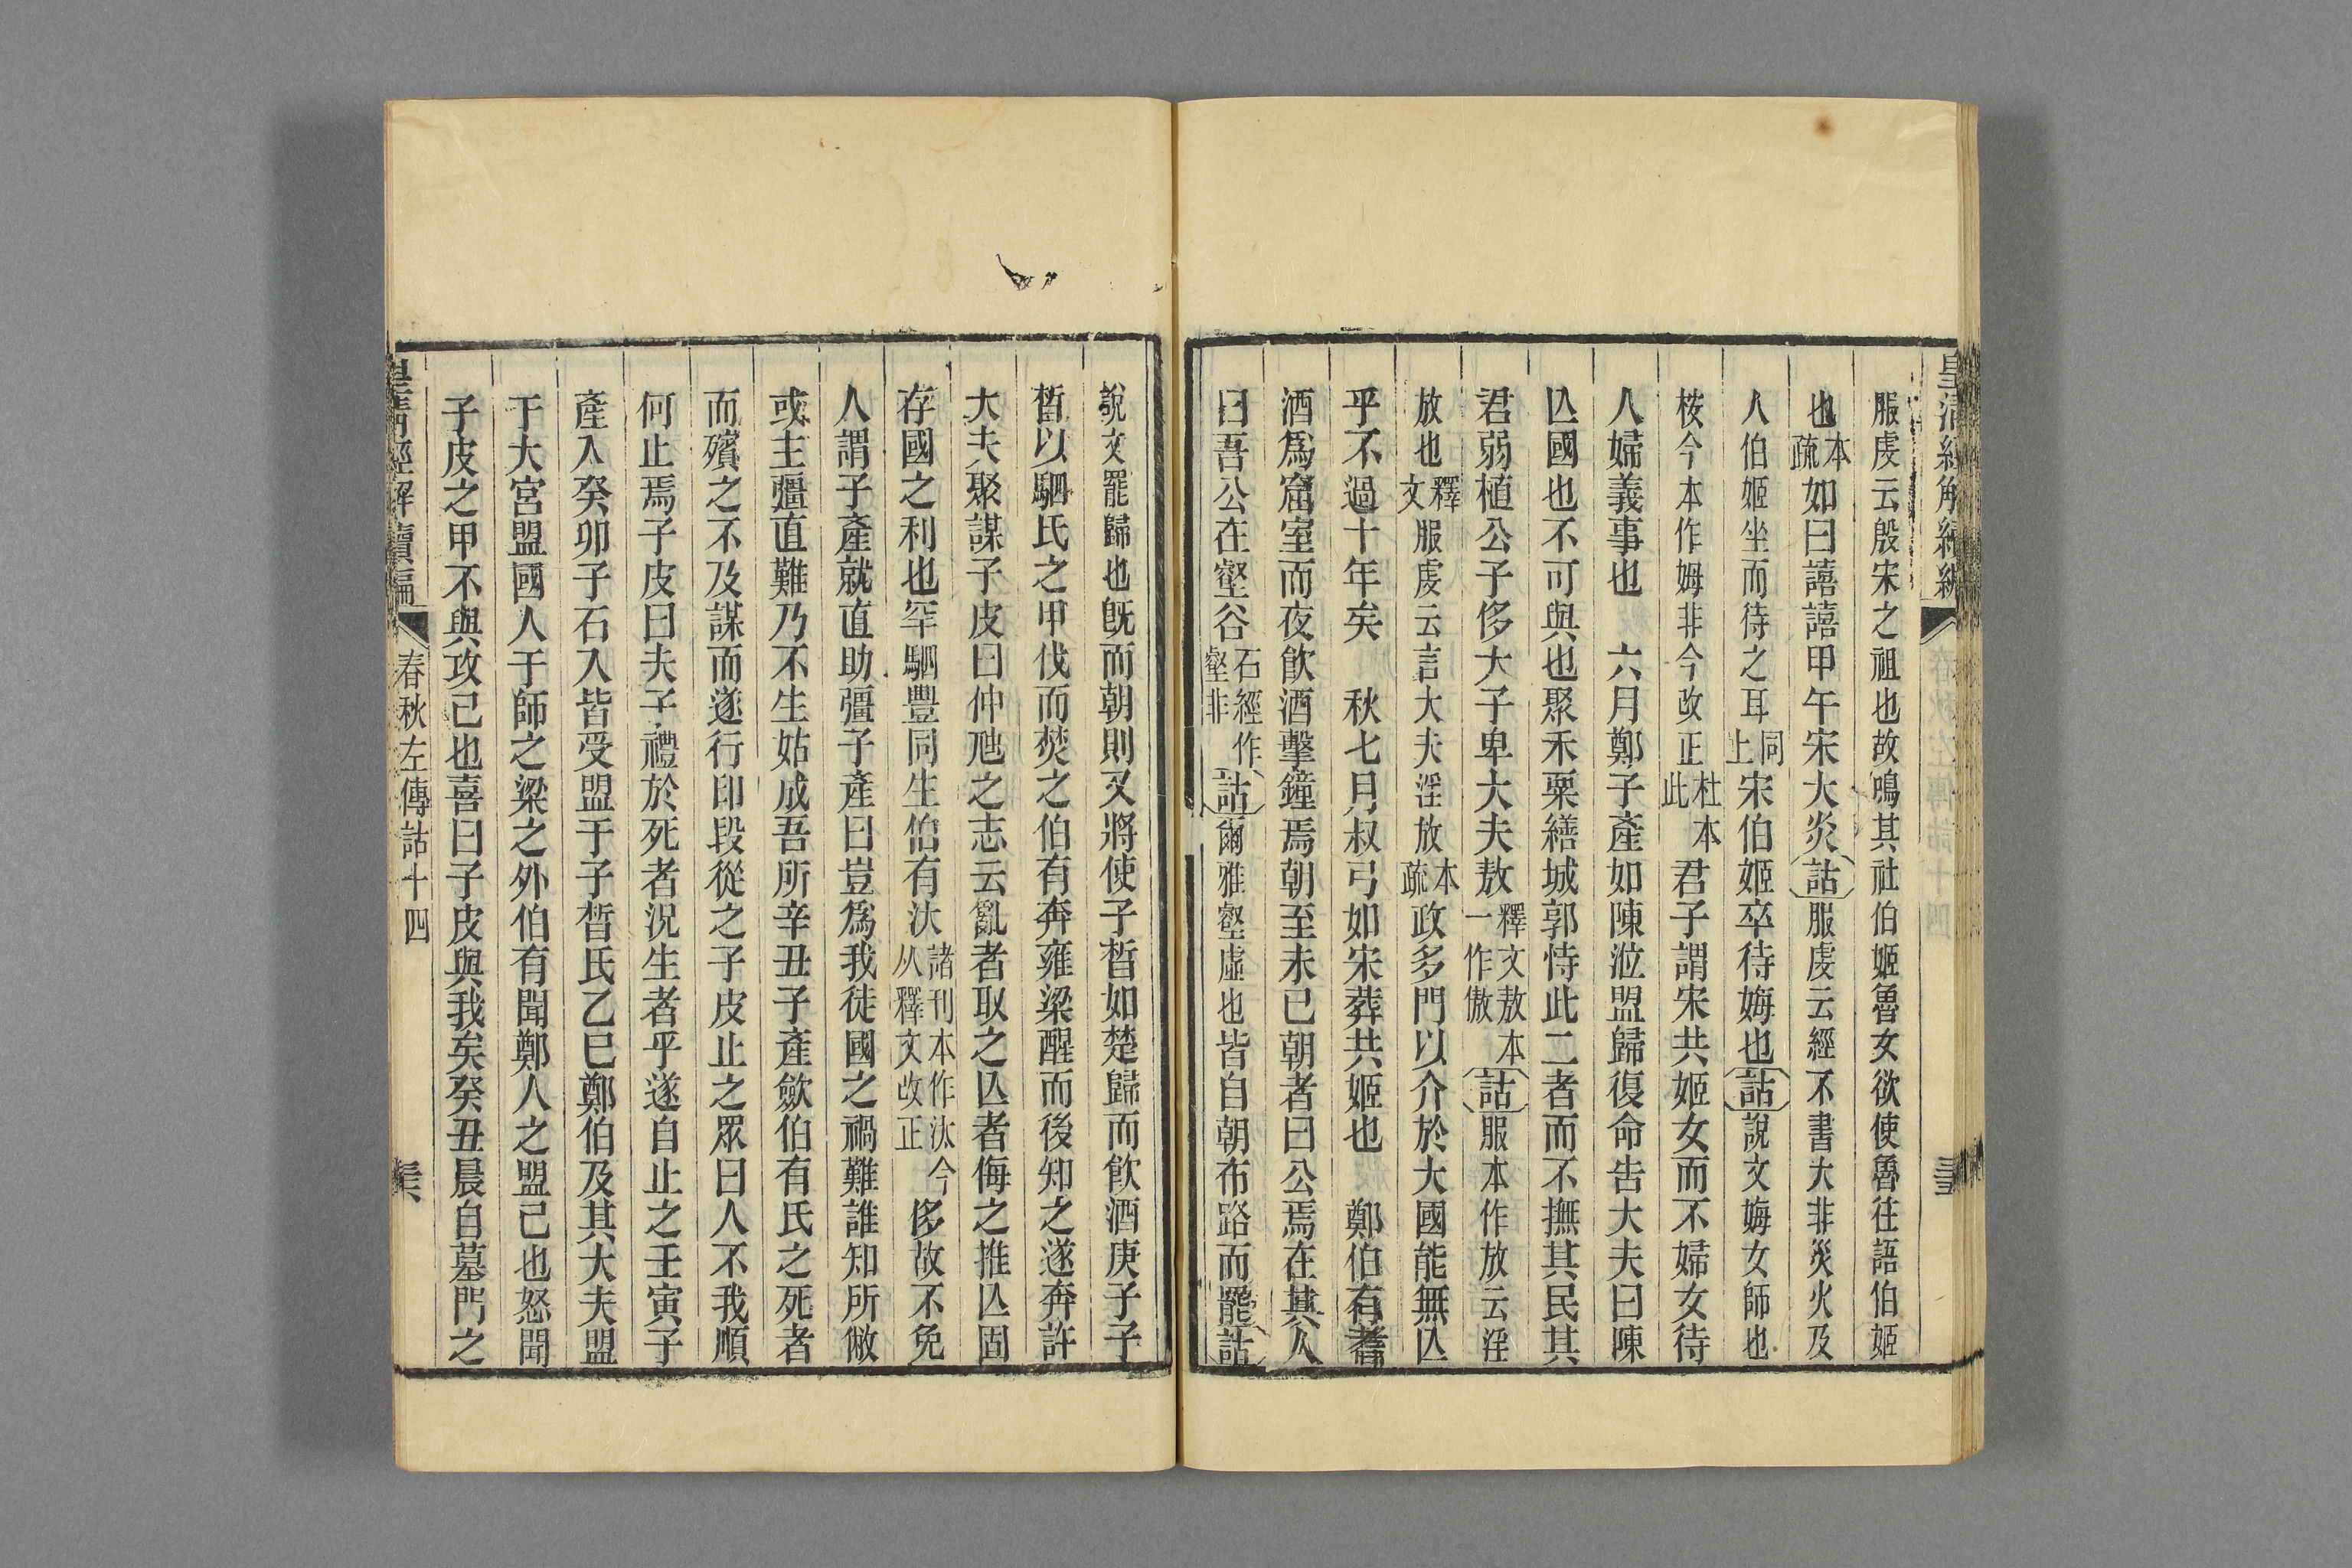 服虔云殷宋之祖也故鳴其社伯姬魯女欲使魯往語伯姬
也本疏如曰譆譆甲午宋大災詁服虔云經不書大非災火及
人伯姬坐而待之耳同上宋伯姬卒待姆也詁說文娒女師也
桉今本作姆非今改正杜本此君子謂宋共姬女而不婦女待
人婦義事也　六月鄭子產如陳涖盟歸復命告大夫曰陳
亾國也不可與也聚禾粟繕城郭恃此二者而不撫其民其
君弱植公子侈大子卑大夫敖釋文敖本一作傲詁服本作放云淫
放也釋文服虔云言大夫淫放本疏政多門以介於大國能無亾
乎不過十年矣　秋七月叔弓如宋葬共姬也　鄭伯有耆
酒爲窟室而夜飲酒擊鐘焉朝至未已朝者曰公焉在其人
曰吾公在壑谷石經作壑非詁爾雅壑虛也皆自朝布路而罷詁
說文罷歸也旣而朝則又將使子晳如楚歸而飲酒庚子子
晳以駟氏之甲伐而焚之伯有奔雍梁醒而後知之遂奔許
大夫聚謀子皮曰仲虺之志云亂者取之亾者侮之推亾固
存國之利也罕駟豐同生伯有汏諸刊本作汰今从釋文改正侈故不免
人謂子產就直助彊子產曰豈爲我徒國之禍難誰知所敝
或主彊直難乃不生姑成吾所辛丑子產斂伯有氏之死者
而殯之不及謀而遂行印段從之子皮止之眾曰人不我順
何止焉子皮曰夫子禮於死者況生者乎遂自止之壬寅子
產入癸卯子石入皆受盟于子晳氏乙巳鄭伯及其大夫盟
于大宮盟國人于師之梁之外伯有聞鄭人之盟己也怒聞
子皮之甲不與攻己也喜曰子皮與我矣癸丑晨自墓門之
皇清經解續編　春秋左傳詁十四